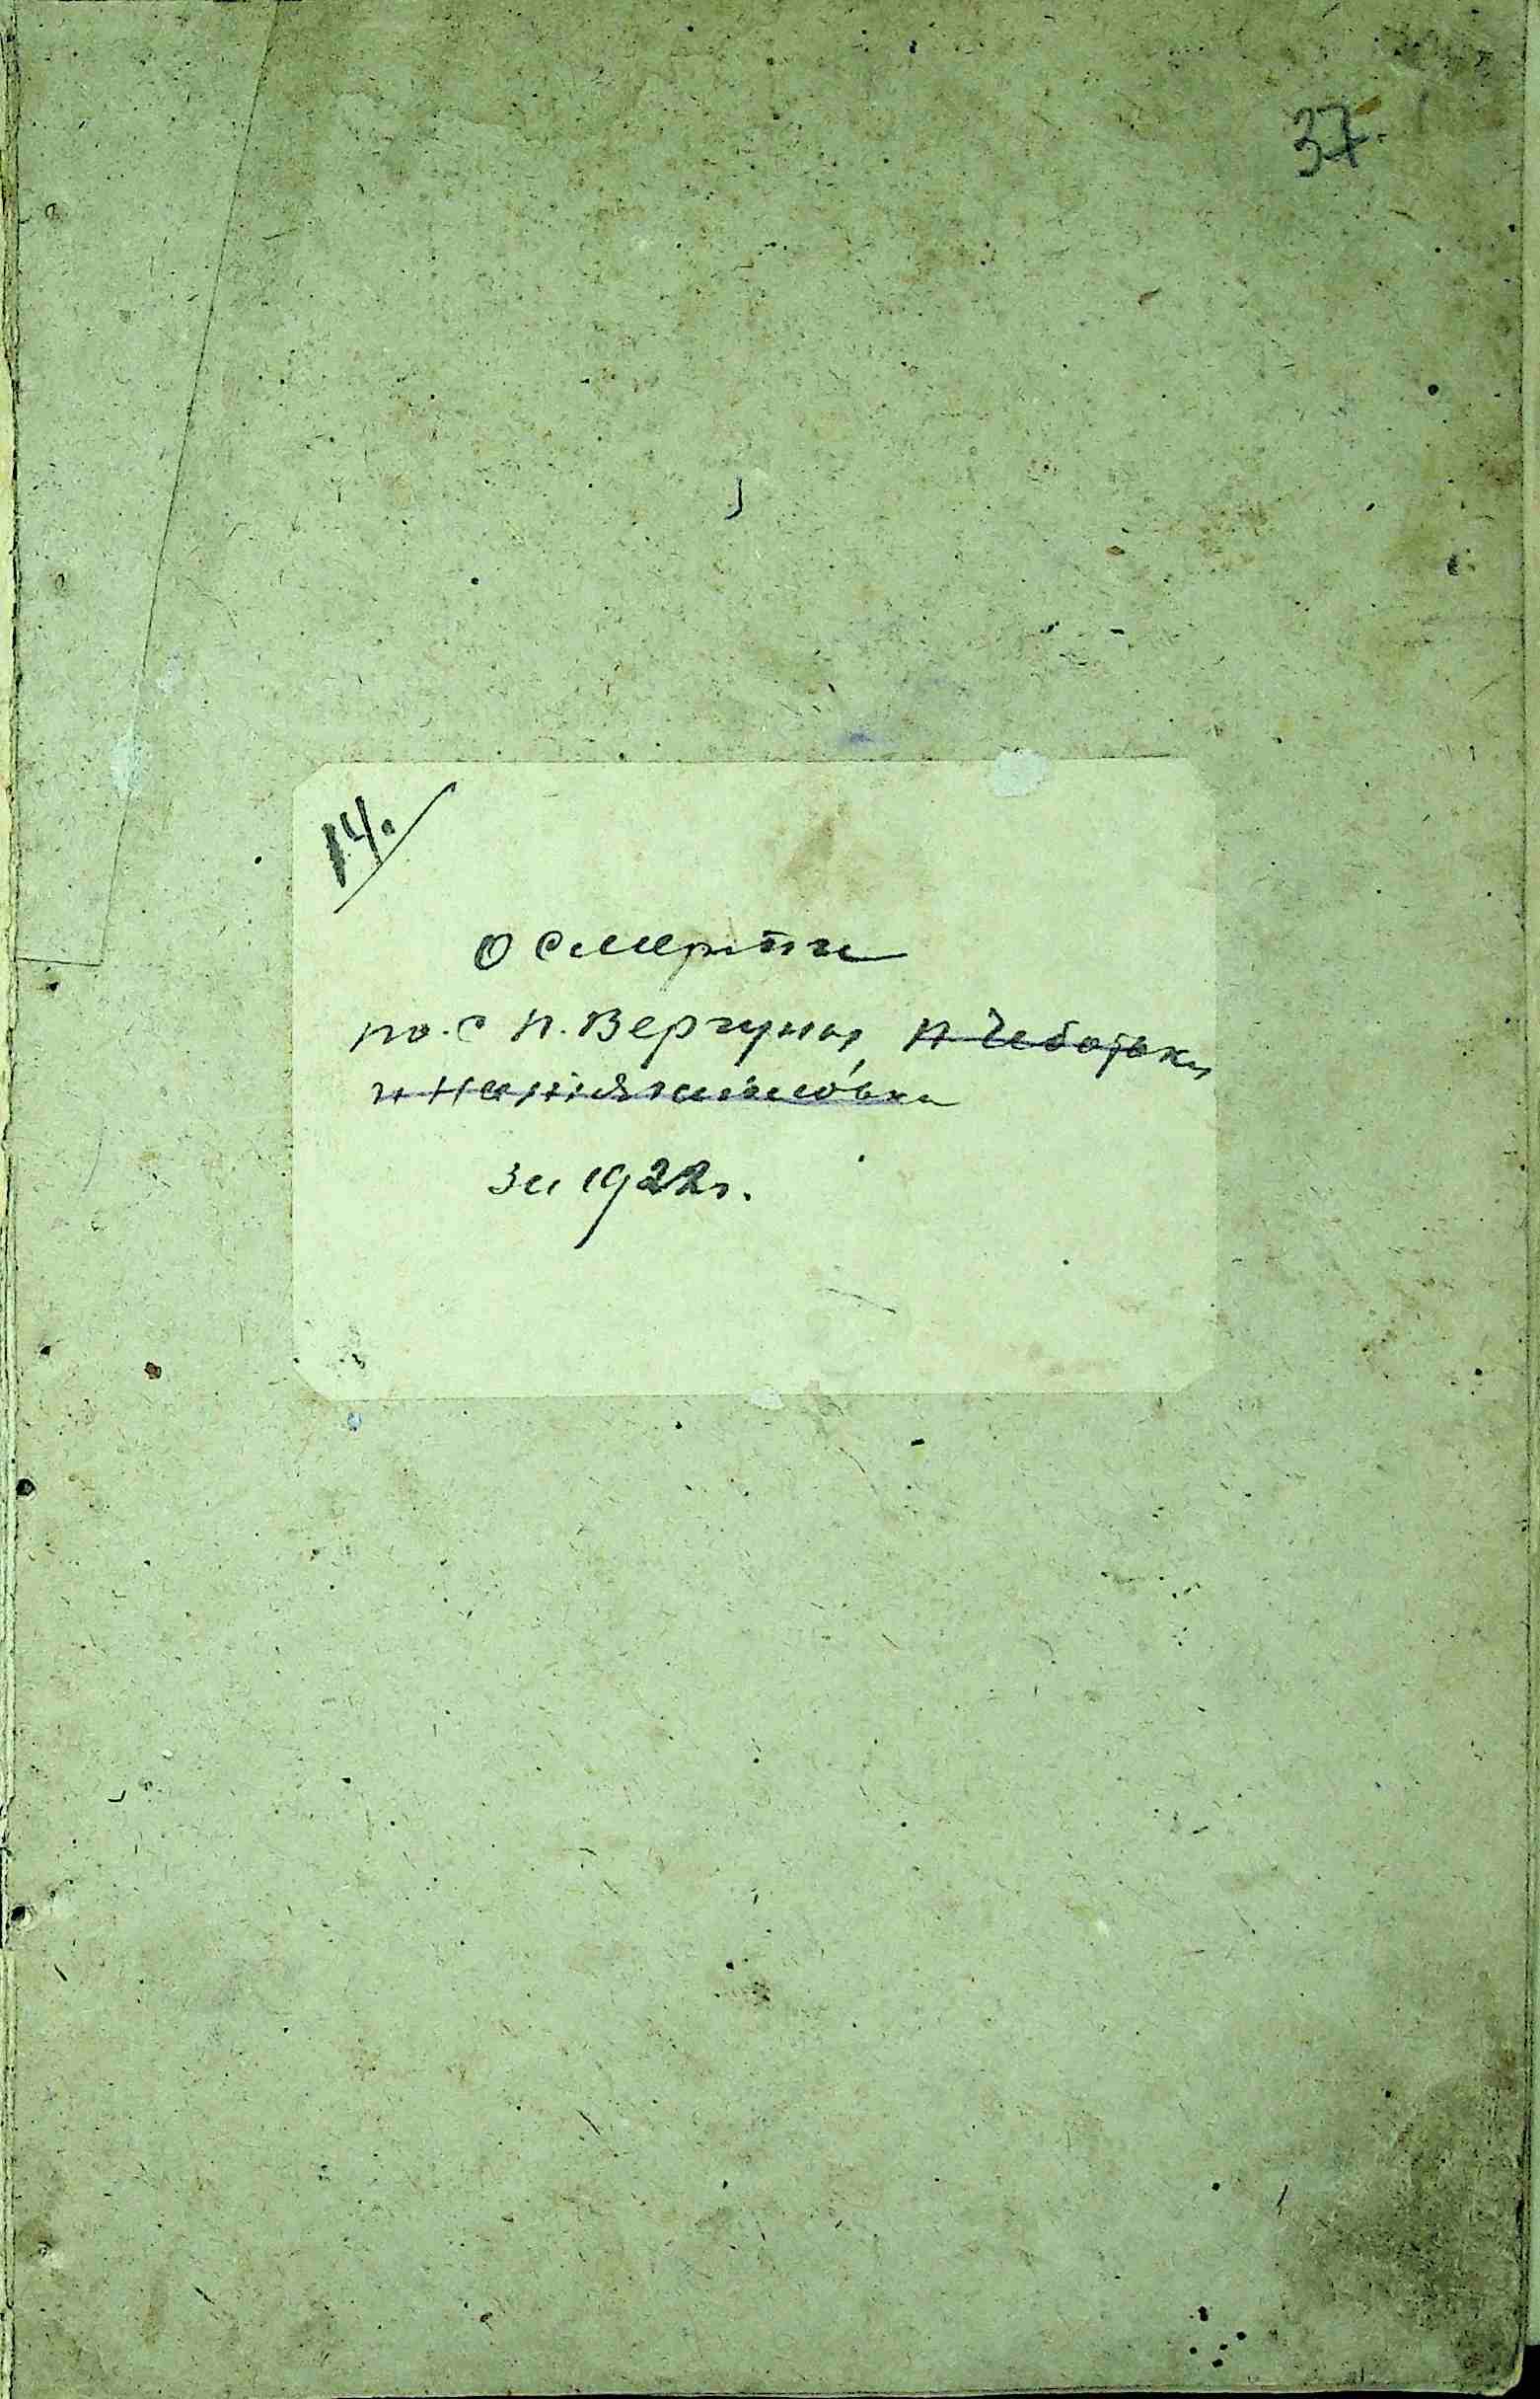 37.
14.
О смерти
по. с п. Вергуны, п Чеботовки
и
за 1922 г.